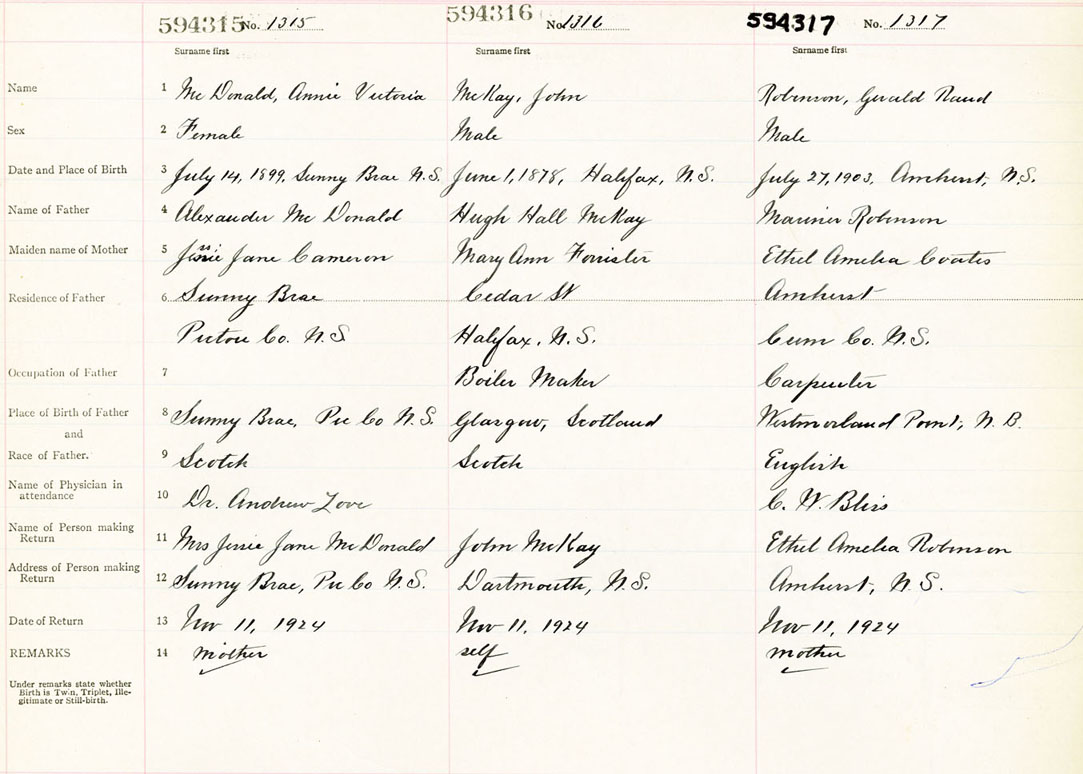 594315 No. 1315 594316 No. 1316 594317 No. 1317
Surname first Surname first Surname first
Name 1 Mc Donald, Annie Victoria McKay, John Robinson, Gerald Rand
Sex 2 Female Male Male
Date and Place of Birth 3 July 14, 1899, Sunny Brae N.S. June 1, 1878, Halifax, N.S. July 27, 1903, Amherst, N.S.
Name of Father 4 Alexander Mc Donald Hugh Hall McKay Mariner Robinson
Maiden name of Mother 5 Jessie Jane Cameron Mary Ann Forrister Ethel Amelia Coates
Residence of Father 6 Sunny Brae Cedar St Amherst
Pictou Co. N.S. Halifax, N.S. Cum Co. N.S.
Occupation of Father 7 Boiler Maker Carpenter
Place of Birth of Father 8 Sunny Brae, Pic Co N.S. Glasgow, Scotland Westmorland Point, N.B.
and
Race of Father. 9 Scotch Scotch English
Name of Physician in
attendance 10 Dr. Andrew Love C. W. Bliss
Name of Person making
Return 11 Mrs Jessie Jane McDonald John McKay Ethel Amelia Robinson
Address of Person making
Return 12 Sunny Brae, Pic Co N.S. Dartmouth, N.S. Amherst, N.S.
Date of Return 13 Nov 11, 1924 Nov 11, 1924 Nov 11, 1924
REMARKS 14 mother self mother
Under remarks state whether
Birth is Twin, Triplet, Ille-
gitimate or Still-birth.